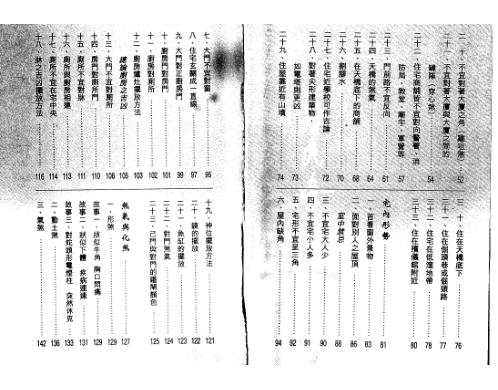 二十、不宜對著大廈之角……52
二十一、不宜對著大廈與大廈之間的
罅隙(穿心煞)……54
二十二、住宅商舖皆不宜對向警署、消
防局、教堂、廟宇、軍營等……57
二十三、門前路不宜反向……61
二十四、天橋的煞氣……64
二十五、在大橋底下的商舖……68
二十六、割腳水……70
二十七、住宅近學校可作吉論……72
二十八、對著尖形建築物,
如電塔則更凶……73
二十九、住屋靠近有山墳……74
三十、住在天橋底下……76
三十一、住在倔頭巷或倔頭路……77
三十二、住宅在低窪地帶……78
三十三、住在殯儀館附近……80
宅內形勢……81
一、首看窗外景物……83
二、面對別人之屋頂……86
室中禁忌……88
三、不宜宅大人少……90
四、不宜宅小人多……91
五、宅形不宜呈三角……92
六、屋內缺角……94
七、大門不宜對窗……95
八、住宅玄關成一直線……97
九、大門對正廚房門……99
十、廚房門對房門……101
十一、廚房對廁所……102
十二、廚房爐灶擺放方法……103
總論廚房之吉凶……105
十三、大門不宜對廁所……106
十四、房門對廁所門……110
十五、廁所不宜對牀……111
十六、廁所與廚房相連……113
十七、廁所不宜在宅中央……114
十八、牀之吉凶擺放方法……116
十九、神位擺放方法……121
二十、鏡的擺放……122
二十一、魚缸的擺放……123
二十二、對門煞氣……124
二十三、己門與對門的鐵閘顏色……125
煞氣與化煞……127
一、形煞……129
故事一、狀似牛角 胸口悶痛……129
故事二、狀似下體 疾病連連……131
故事三、對蛇頭形電燈柱 突然休克……133
二、動土煞……136
三、氣煞……142